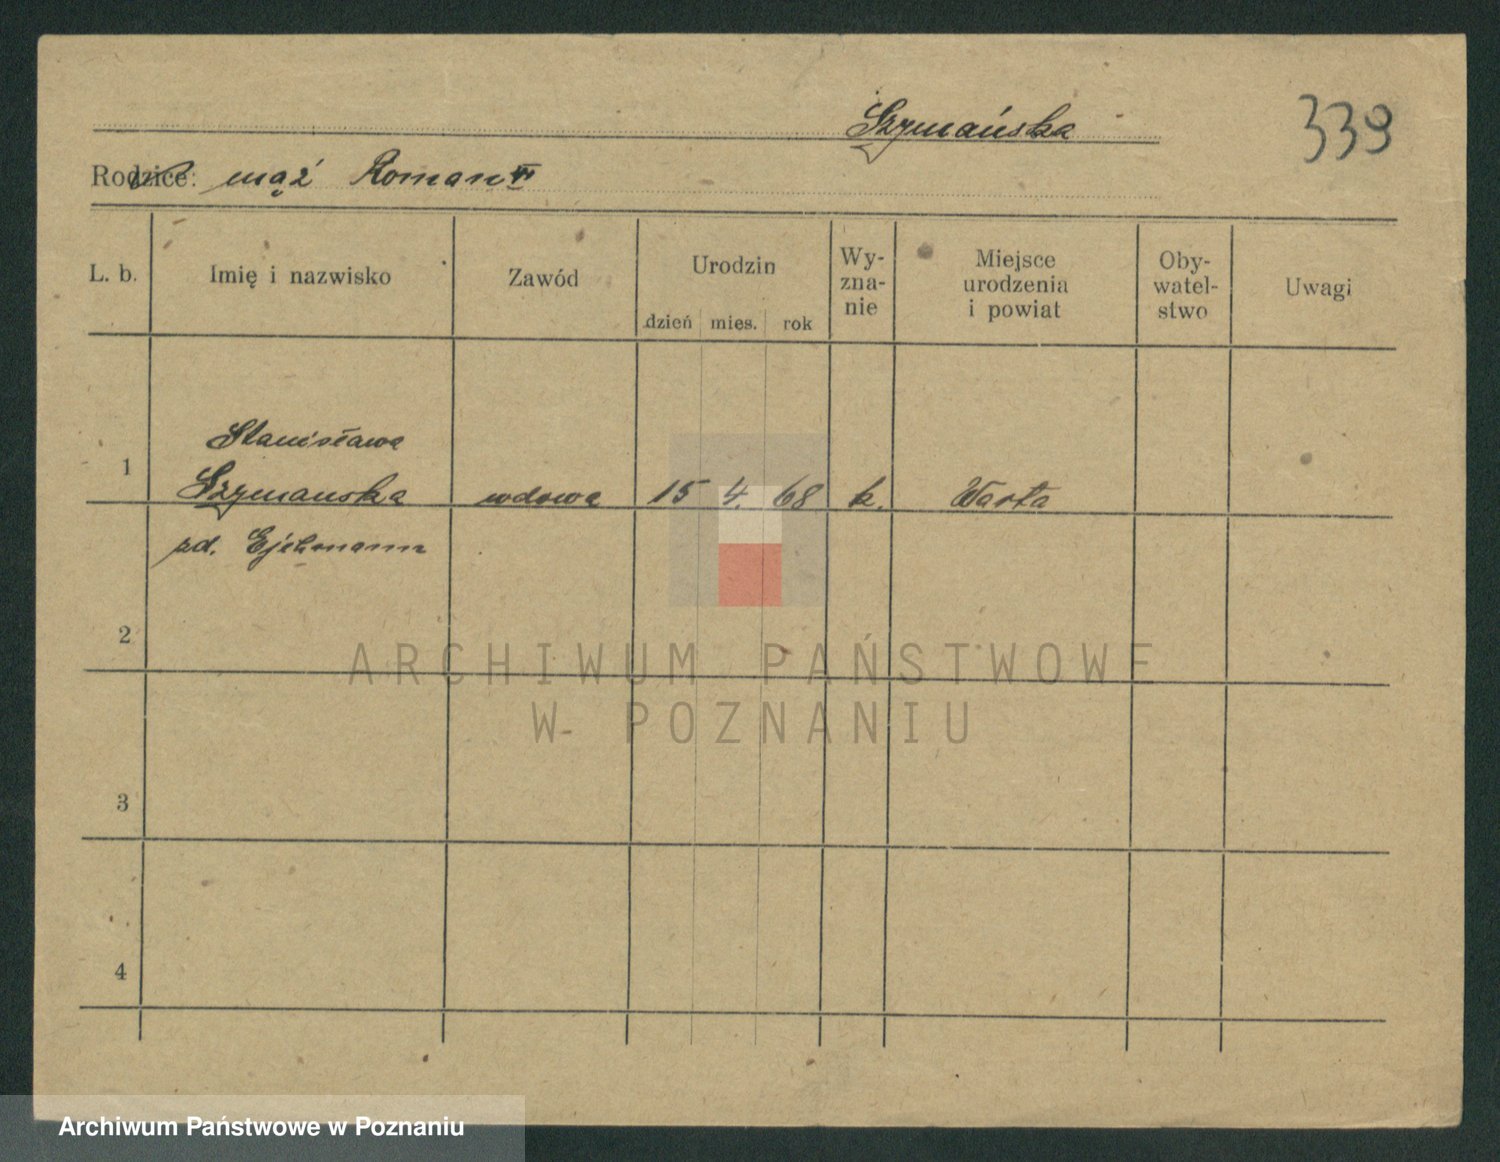 Szymańska
339
Rodzice: mąż Roman
L. b. Imię i nazwisko Zawód Urodzin Wy-
zna-
nie Miejsce
urodzenia
i powiat Oby-
watel-
stwo Uwagi
dzień mies. rok
Stanisława
1 Szymanska wdowa 15 4. 68 k. Warta
zd. Ejchmann
2
3
4
ARCHIWUM PAŃSTWOWE
W POZNANIU
Archiwum Państwowe w Poznaniu